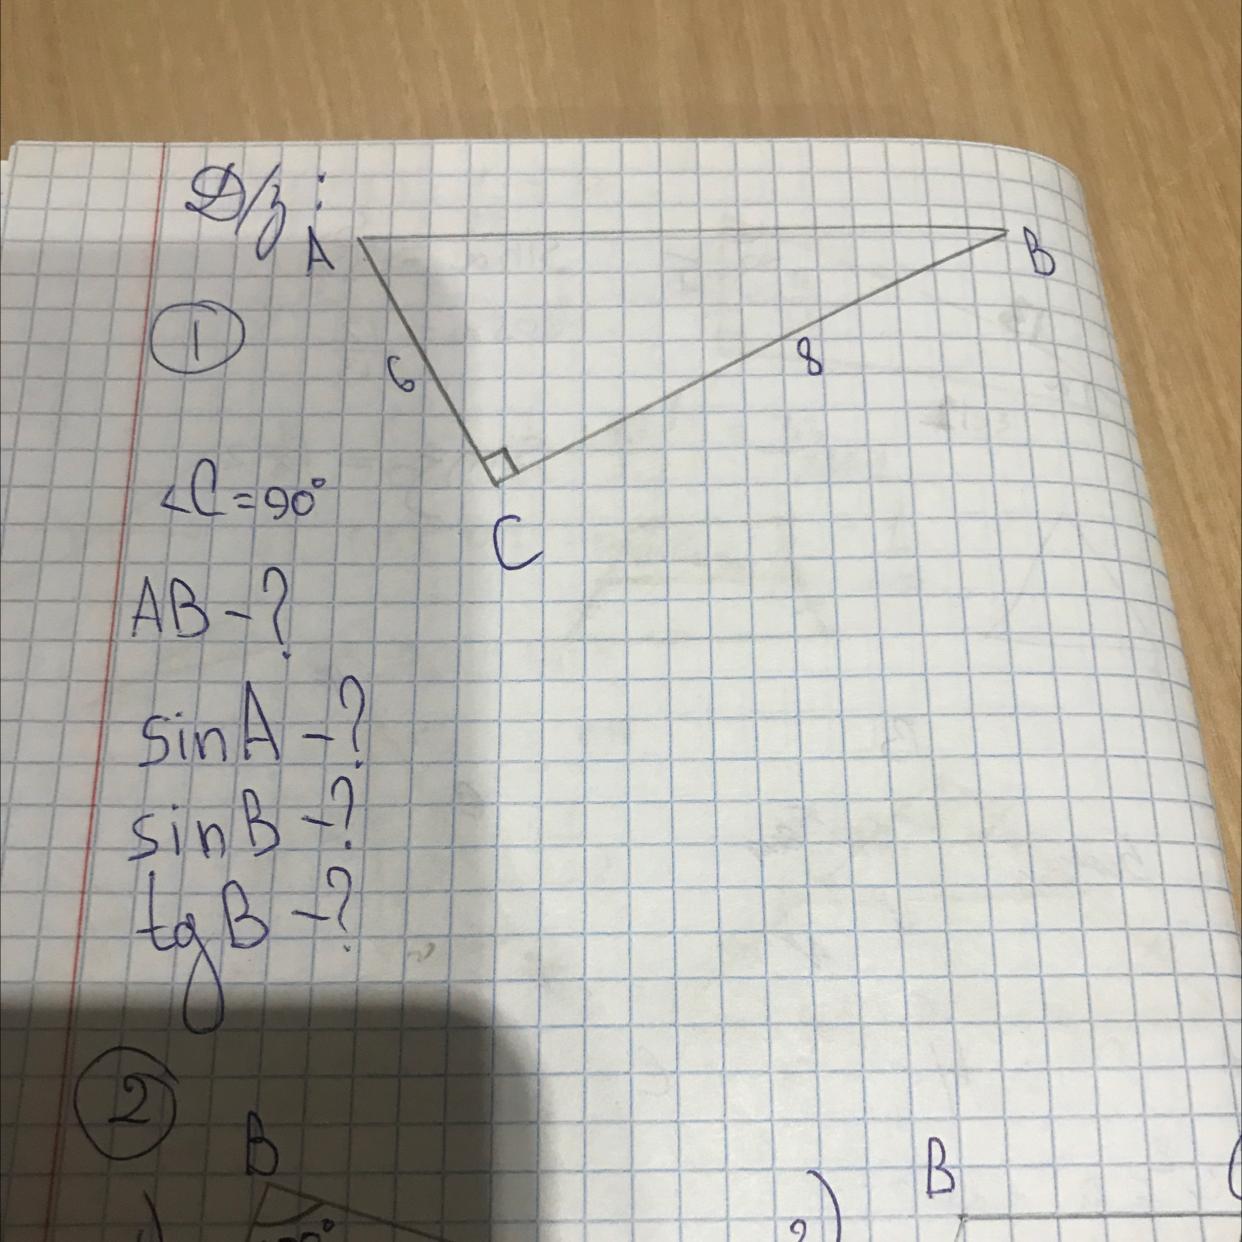 Д/з:
A
B
1
6
8
<C=90°
C
AB-?
sinA-?
sinB-?
tgB-?
2
B
B